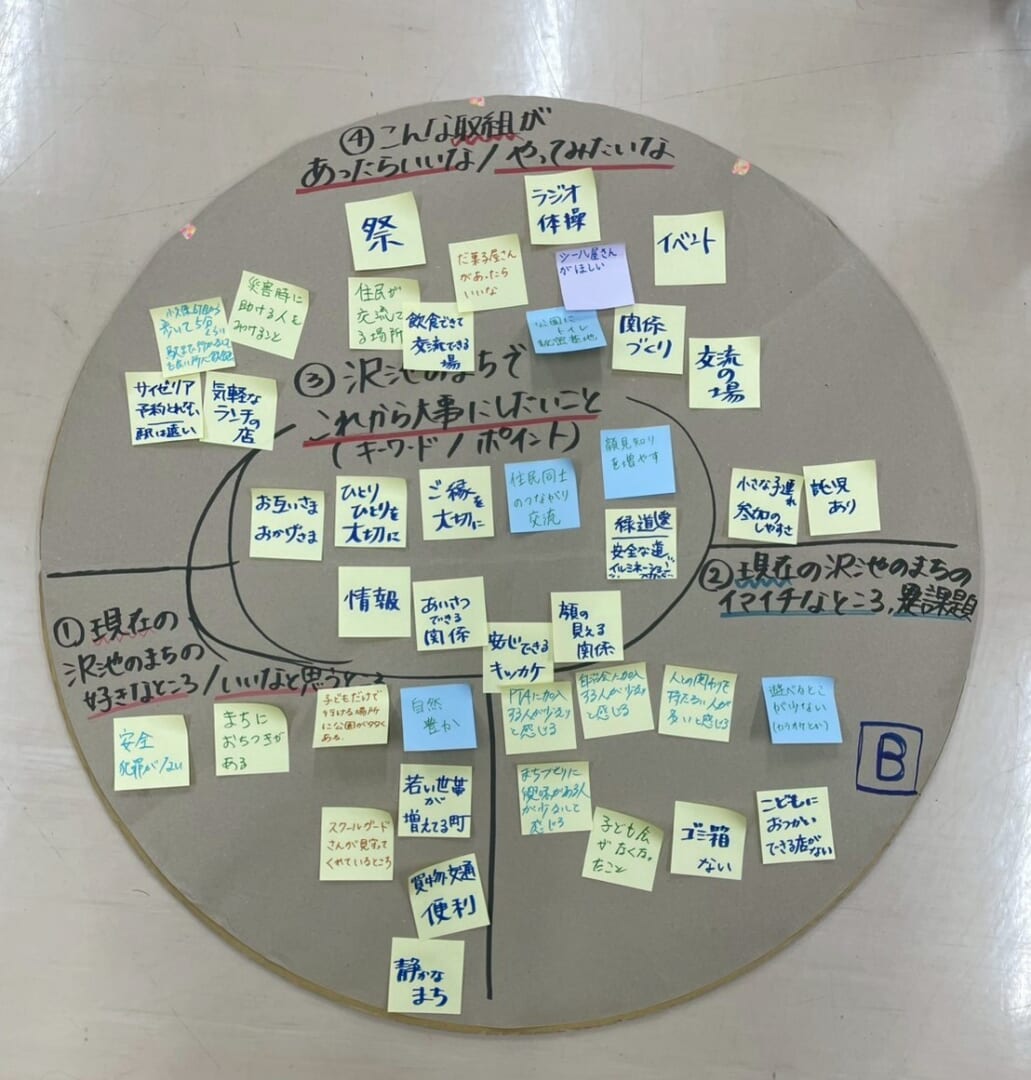 ④こんな取組が
あったらいいな/やってみたいな
祭
ラジオ
体操
イベント
だ菓子屋さん
があったら
いいな
シール屋さん
がほしい
災害時に
助ける人を
みつけること
住民が
交流で
る場所
飲食できて
交流できる
場
公園に
トイレ
関係
づくり
交流
の
場
歩いて5分
サイゼリア
予約とれない
駅は遠い
気軽な
ランチの
店
③沢池のまちで
これから大事にしたいこと
(キーワード/ポイント)
お互いさま
おかげさま
ひとり
ひとりを
大切に
ご縁を
大切に
住民同士
のつながり
交流
顔見知り
を増やす
緑道
安全な道
イルミネーション
情報
あいさつ
できる
関係
安心できる
キッカケ
顔の
見える
関係
小さな子連れ
参加の
しやすさ
託児
あり
②現在の沢池のまちの
イマイチなところ,課題
①現在の
沢池のまちの
好きなところ/いいなと思うところ
安全
犯罪がない
まちに
おちつきが
ある
子どもだけで
行ける場所
に公園が多く
ある。
自然
豊か
若い世帯
が
増えてる町
スクールガード
さんが見守って
くれているところ
買物・交通
便利
静かな
まち
PTAに加入
する人が少ないッ
と感じる
自治会に加入
する人が少ないッ
と感じる
人との関わりを
持たない人が
多いと感じる
遊べるとこ
が少ない
(カラオケとか)
まちづくりに
興味がある人
が少ないと
感じる
子ども会
がなくなっ
たこと
ゴミ箱
ない
こどもに
おつかい
できる店がない
B